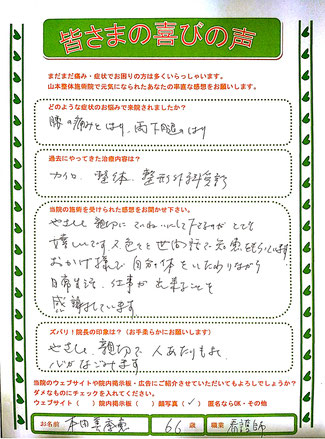 皆さまの喜びの声
まだまだ痛み・症状でお困りの方は多くいらっしゃいます。
山本整体施術院で元気になられたあなたの率直な感想をお願いします。
どのような症状のお悩みで来院されましたか?
膝の痛みとはり、両下腿のはり
過去にやってきた治療内容は?
カイロ、整体、整形外科受診
当院の施術を受けられた感想をお聞かせ下さい。
やさしく親切にていねいにして下さるのがとても
嬉しいです。色々と世間話で元気をもらいます
おかげ様で自分の体をいたわりながら
日常生活、仕事が出来ることを
感謝しています
ズバリ!院長の印象は?(お手柔らかにお願いします)
やさしく、親切で人あたりもよく
心がなごみます
当院のウェブサイトや院内掲示板・広告にご紹介させていただいてもよろしでしょうか?
ダメなものにチェックを入れてください。
ウェブサイト( )院内掲示板( )顔写真(✓)匿名ならOK・その他
お名前 本田 66歳 職業 看護師